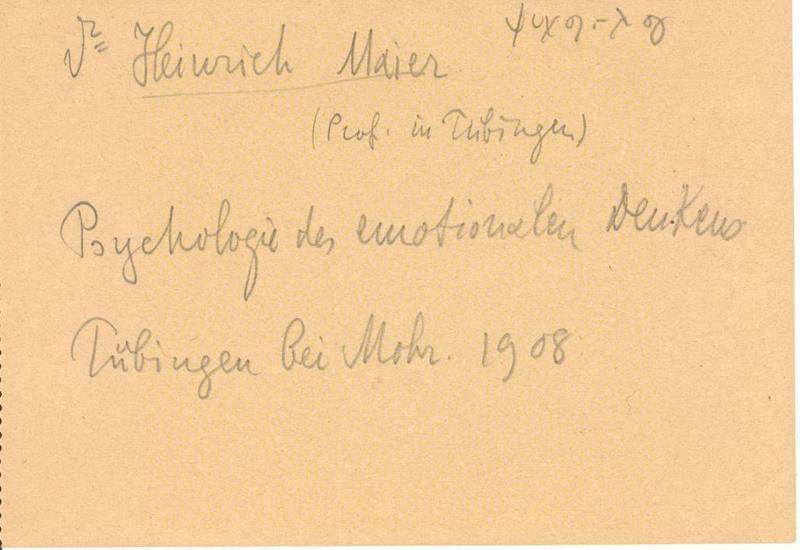 Dr Heinrich Maier
(Prof. in Tübingen)
Psychologie des emotionalen Denkens
Tübingen bei Mohr. 1908